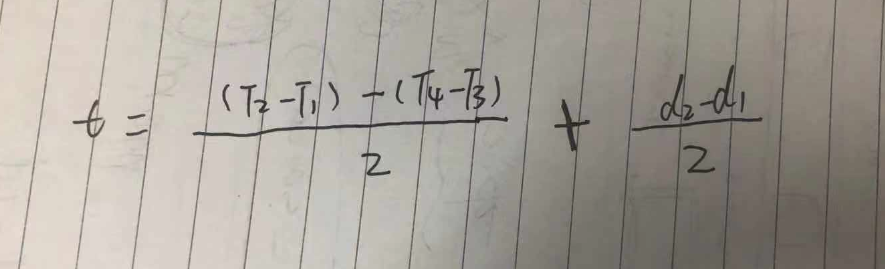 t = \frac{(T_2 - T_1) - (T_4 - T_3)}{2} + \frac{d_2 - d_1}{2}